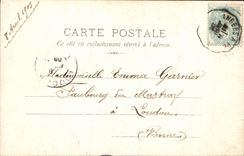 1 Avril 1905
CARTE POSTALE
Ce côté est exclusivement réservé à l'adresse.
Mademoiselle Emma Garnier
Faubourg du Martray
à Loudun
Vienne